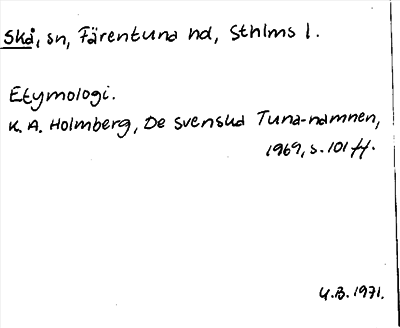 Skå, sn, Färentuna hd, Sthlms l.
Etymologi.
K. A. Holmberg, De svenska Tuna-namnen,
1969, s. 101 ff.
U.B. 1971.